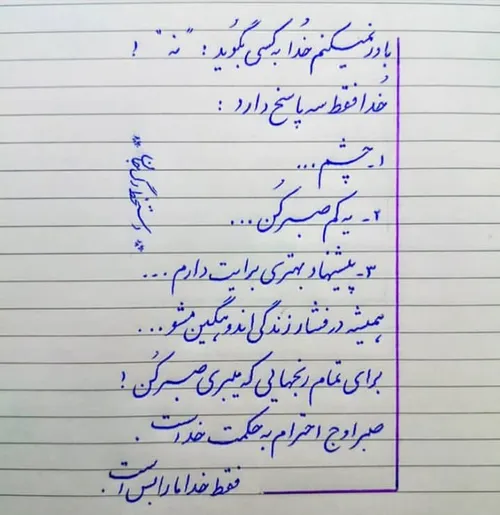 باور نمیکنم خُدا به کسی بگوید : "نه" !
خُدا فقط سه پاسخ دارد :
۱- چشم ...
۲- یه کم صبر کُن ...
۳- پیشنهاد بهتری برایت دارم ...
همیشه در فشار زندگی اندوهگین مشو ...
برای تمام رنجهایی که میبری صبر کُن !
صبر اوج احترام به حکمت خداست .
فقط خدا ما را بس است .